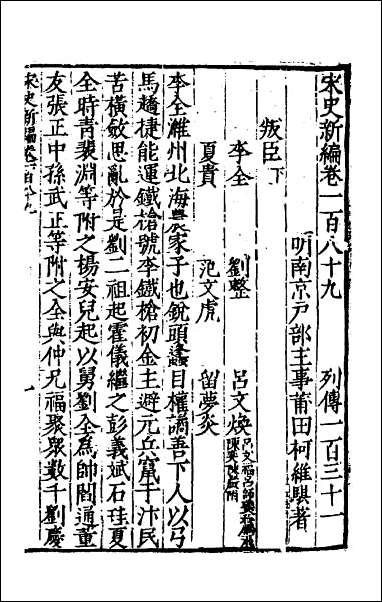 宋史新編卷一百八十九　列傳一百三十一
明南京戶部主事莆田柯維騏著
叛臣下
李全　劉整　呂文煥 呂文福呂師夔
夏貴　范文虎　留夢炎
李全濰州北海農家子也銳頭蠭目權譎善下人以弓
馬趫捷能運鐵槍號李鐵槍初金主避元兵竄于汴民
苦橫斂思亂於是劉二祖起霍儀繼之彭義斌石珪夏
全時青裴淵等附之楊安兒起以舅劉全爲帥閻通董
友張正中孫武正等附之全與仲兄福聚眾數千劉慶
宋史新編卷一百八十九　一